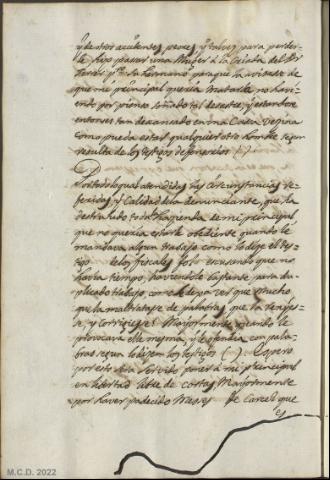 y de otros accidentes, veces, y tal vez para perder-
le hizo pasar una Muger à la Criada del Dr
Ferrer y su hermano para que la avisase de
que mi principal queria Matarle no havi-
endo por pienso soñado tal desastre, y estandose
entonses tan descansado en una Casa Vezina
como pueda estar qualquier otro hombre segun
resulta de los testigos defensorios (..)
Por todo lo qual atendidas las Circunstancias re-
feridas y Calidad de la denunciante, que ha
destruhido toda hazienda de mi principal
que no queria estarle obediente quando le
mandava algun trabajo como lo dize el tes-
tigo de los fiscales fol. escusando que no
havia tiempo, haviendole bastante para du-
plicado trabajo, con se deja ver que mucho
que la maltratase de palabras, que la riñes-
se, y corrigiese! Mayormente quando le
provocava ella mesma, y le ofendia con pala-
bras segun lo dizen los testigos (..) Espero
por esto sea servido poner à mi principal
en libertad libre de costas Mayormente
por haver padecido Meses de Carcel que
es
M.C.D. 2022